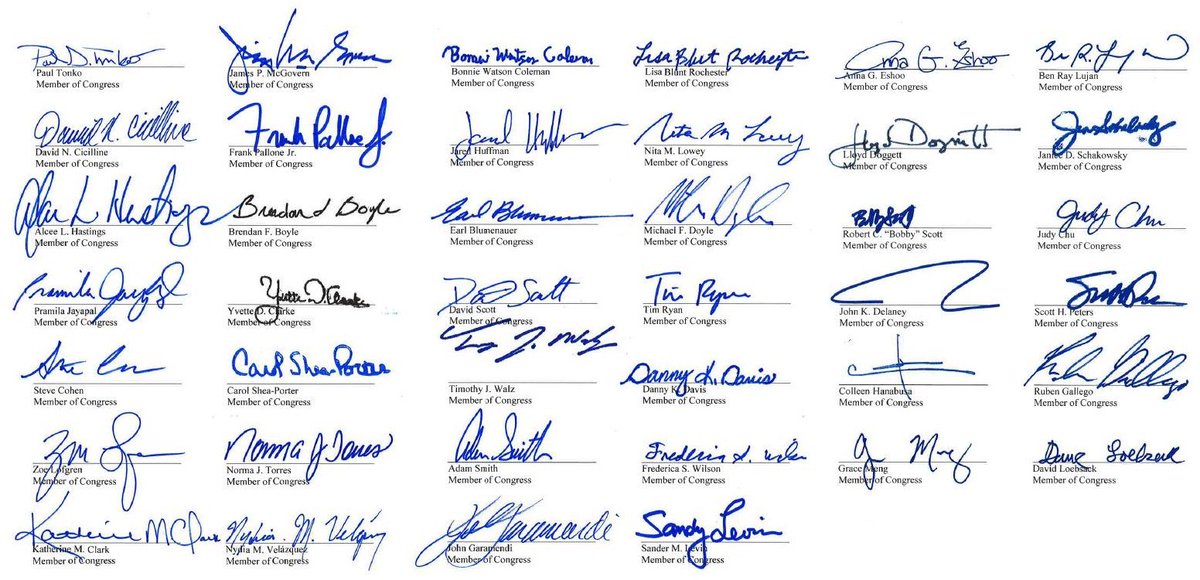 Paul D. Tonko
Paul Tonko
Member of Congress
James P. McGovern
Member of Congress
Bonnie Watson Coleman
Bonnie Watson Coleman
Member of Congress
Lisa Blunt Rochester
Lisa Blunt Rochester
Member of Congress
Anna G. Eshoo
Anna G. Eshoo
Member of Congress
Ben Ray Lujan
Member of Congress
David N. Cicilline
David N. Cicilline
Member of Congress
Frank Pallone Jr.
Frank Pallone Jr.
Member of Congress
Jared Huffman
Jared Huffman
Member of Congress
Nita M Lowey
Nita M. Lowey
Member of Congress
Lloyd Doggett
Lloyd Doggett
Member of Congress
Janice D. Schakowsky
Member of Congress
Alcee L Hastings
Alcee L. Hastings
Member of Congress
Brendan F Boyle
Brendan F. Boyle
Member of Congress
Earl Blumenauer
Earl Blumenauer
Member of Congress
Michael F. Doyle
Member of Congress
Bobby Scott
Robert C. "Bobby" Scott
Member of Congress
Judy Chu
Judy Chu
Member of Congress
Pramila Jayapal
Pramila Jayapal
Member of Congress
Yvette D. Clarke
Yvette D. Clarke
Member of Congress
David Scott
David Scott
Member of Congress
Tim Ryan
Tim Ryan
Member of Congress
John K. Delaney
Member of Congress
Scott H. Peters
Member of Congress
Steve Cohen
Member of Congress
Carol Shea-Porter
Carol Shea-Porter
Member of Congress
Timothy J. Walz
Member of Congress
Danny K. Davis
Danny K. Davis
Member of Congress
Colleen Hanabusa
Member of Congress
Ruben Gallego
Ruben Gallego
Member of Congress
Zoe Lofgren
Member of Congress
Norma J Torres
Norma J. Torres
Member of Congress
Adam Smith
Adam Smith
Member of Congress
Frederica S. Wilson
Frederica S. Wilson
Member of Congress
Grace Meng
Member of Congress
Dave Loebsack
David Loebsack
Member of Congress
Katherine M Clark
Katherine M. Clark
Member of Congress
Nydia M. Velázquez
Nydia M. Velázquez
Member of Congress
John Garamendi
John Garamendi
Member of Congress
Sandy Levin
Sander M. Levin
Member of Congress